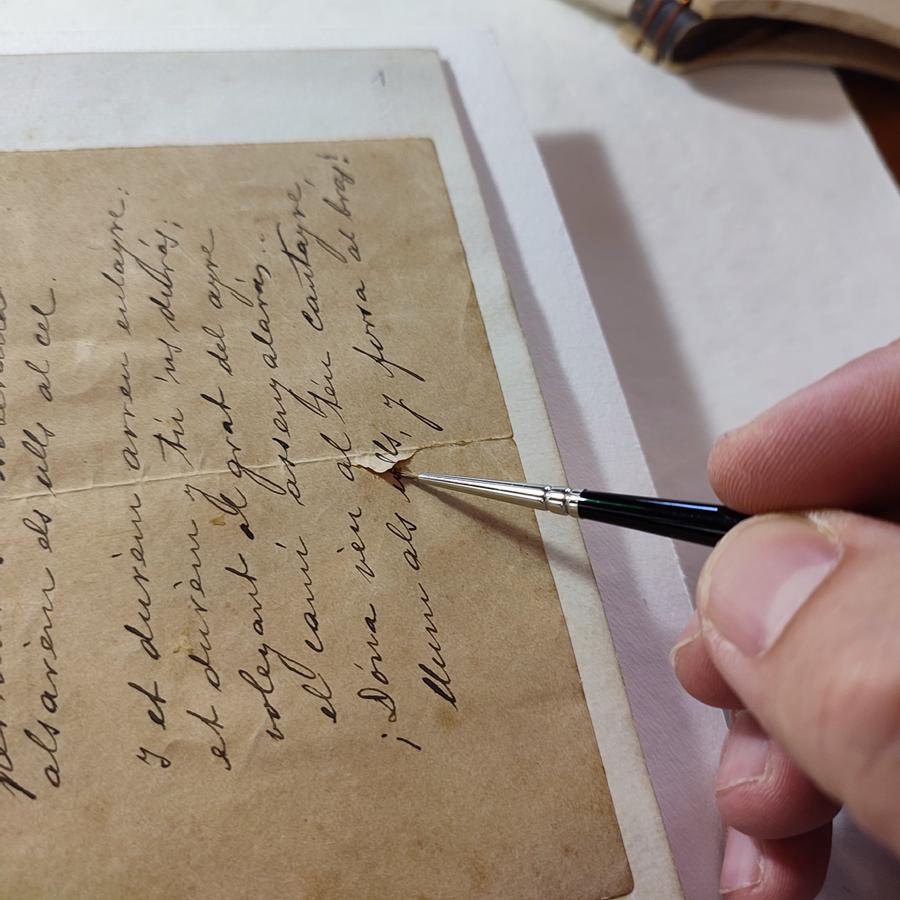 alsarèm els ulls al cel.
Y et durèm arreu enlayre:
et durèm y tú 'ns durás;
voleyant al grat del ayre
el camí assenyalarás...
¡Dóna vèu al tèu cantayre,
llum als ulls, y forsa al bras!